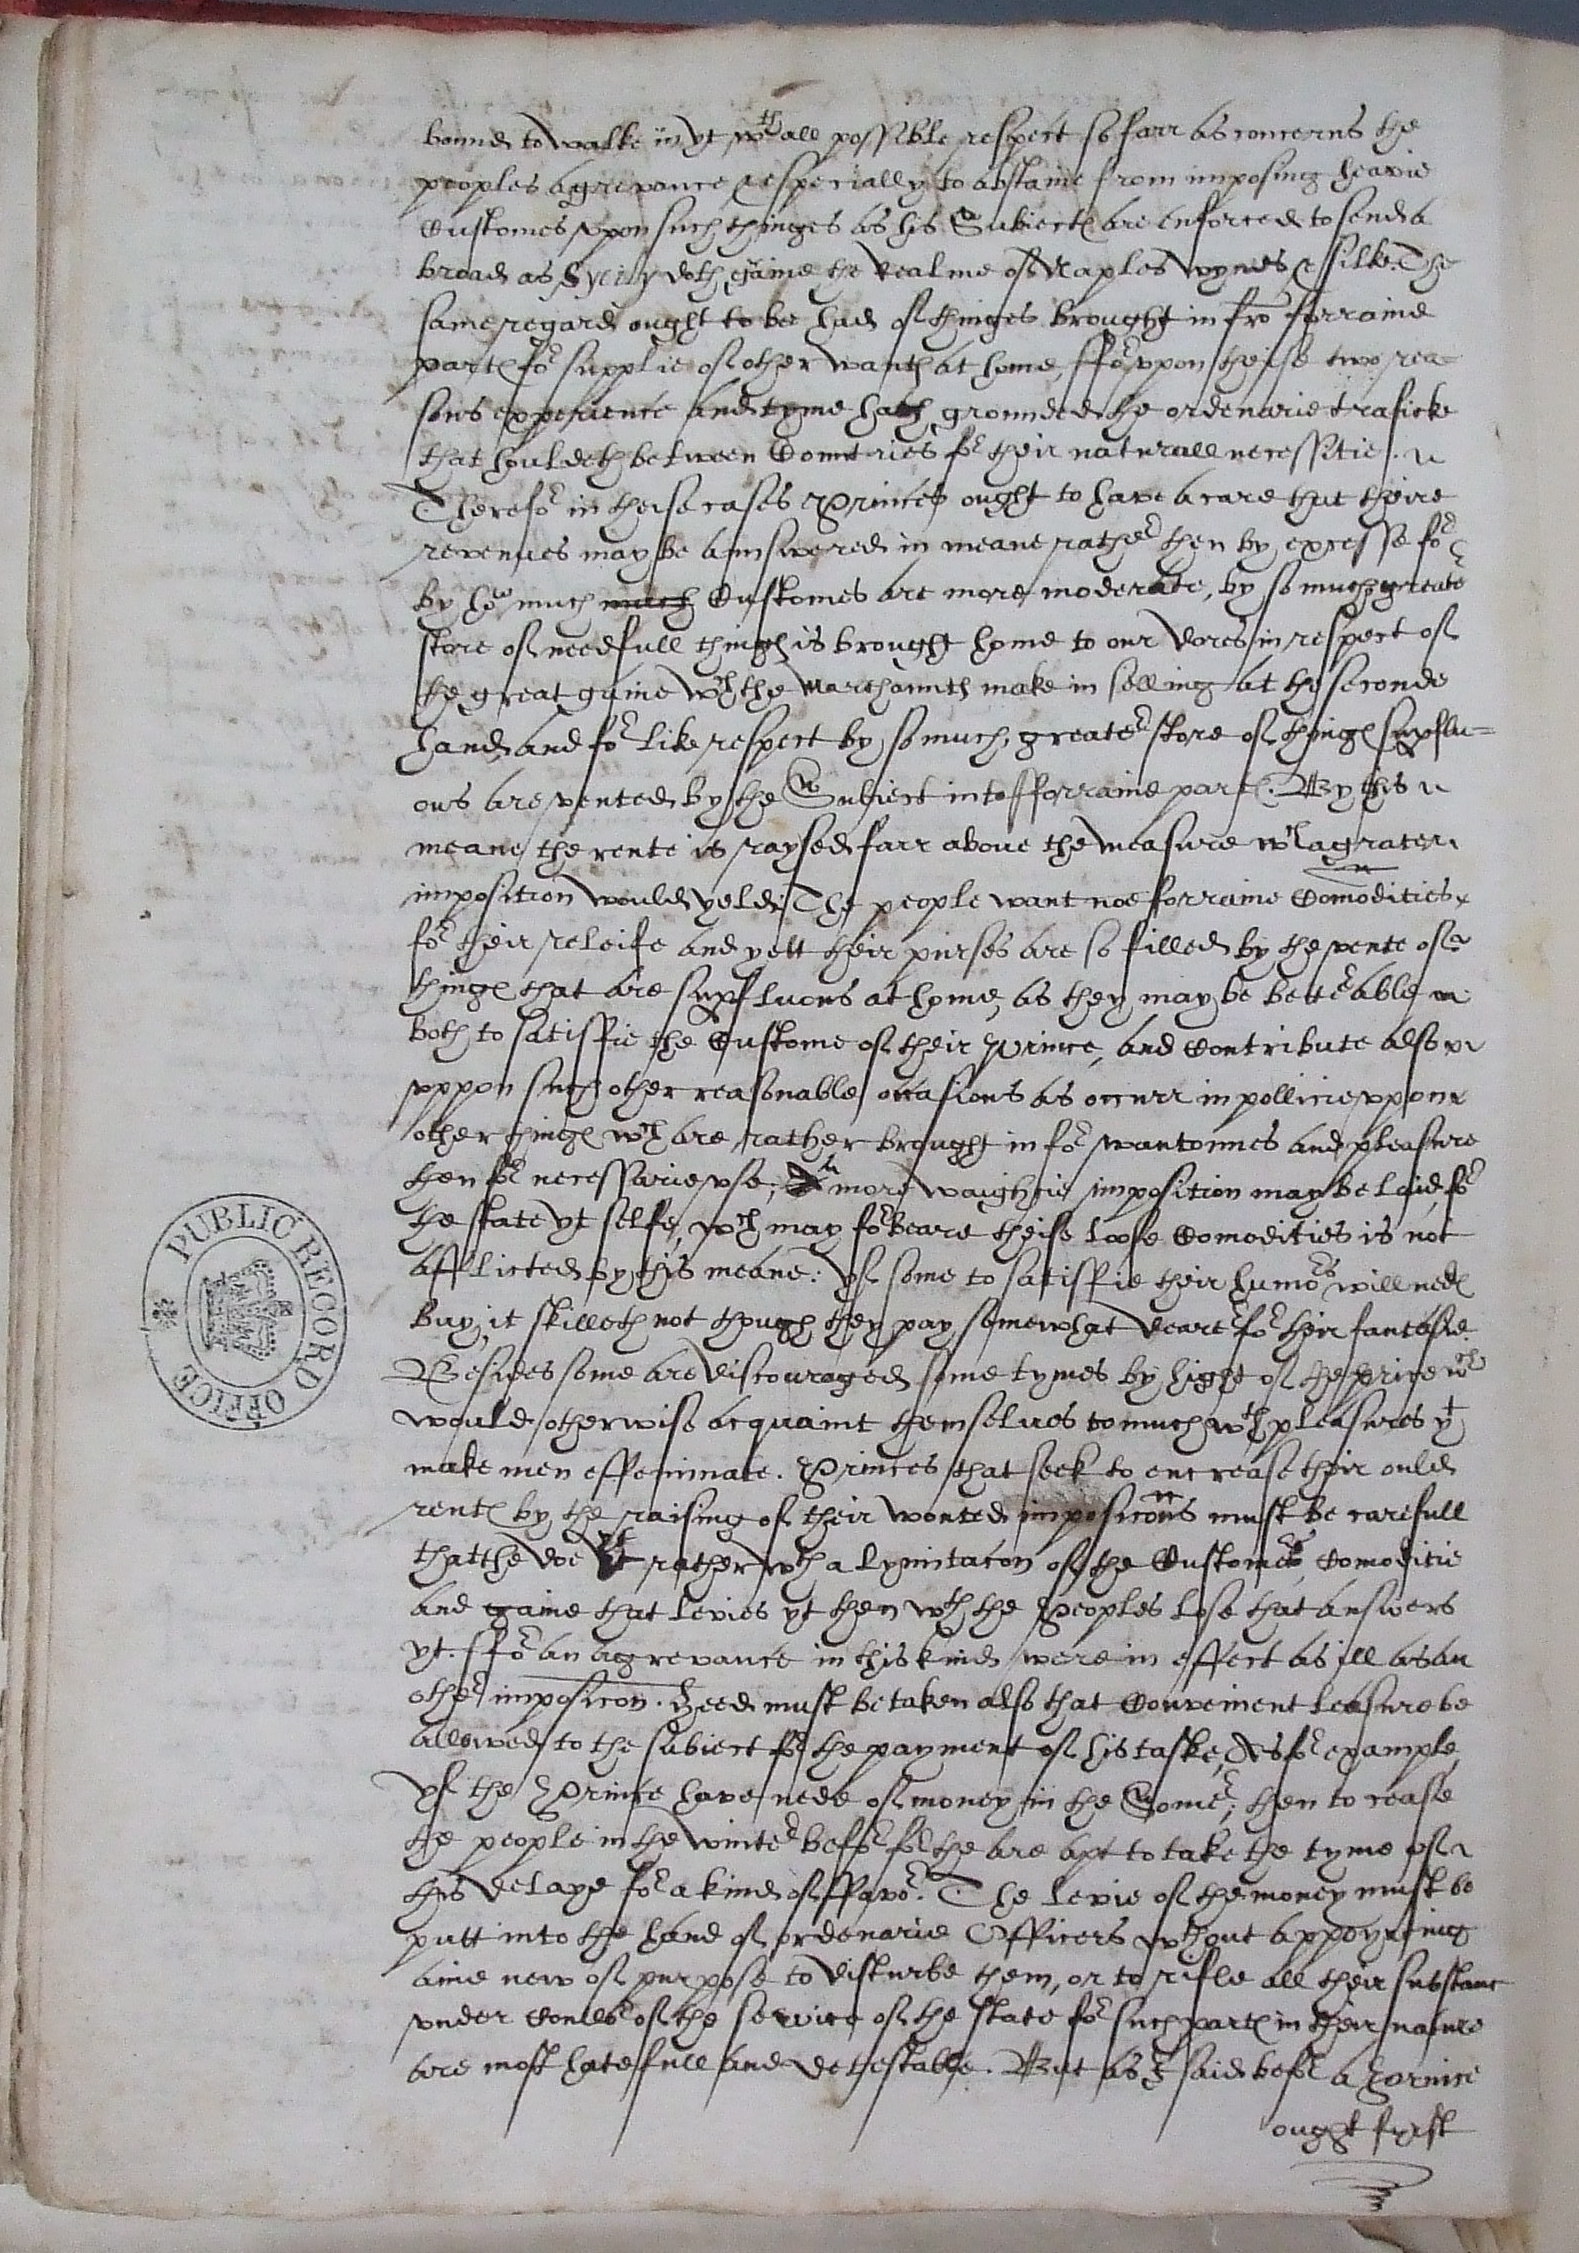 bound to walke in yt wth all possible respect so farr as concerns the
peoples agrevance & especially to abstaine from imposing heavie
Customes vpon such thinges as his Subiectes are enforced to send a
broad as Sycily doth graine the Realme of Naples wynes & silke. The
same regard ought to be had of thinges brought in fro forraine
partes for supplie of other wantes at home, ffor vpon theise two rea-
sons experience and tyme hath grounded the ordenarie traficke
that houldeth between Countries for their naturall necessitie.
Therefor in theise cases Princes ought to have a care that theire
revenues may be aunswered in meane rather then by excesse for
by how much much Customes are more moderate, by so much greater
store of needfull thinges is brought home to our dores in respect of
the great gaine wch the Marchauntes make in selling at the seconde
hand, and for like respect by so much greater store of thinges supflu-
ous are vented by the Subiect into fforraine partes. By this
meane the rente is raysed farr above the measure wch a grater
imposition would yeld. The people want noe forraine Comodities
for their releife and yett their purses are so filled by the vente of
thinges that are supfluous at home, as they may be better able
both to satisfie the Custome of their Prince, and Contribute also
vppon such other reasonable occasions as occurr in pollicie vppon
other thinges wch are rather brought in for wantonnes and pleasure
then for necessarie vse; a more waightie imposition may be laid, for
the state yt selfe, wch may forbeare theise loose Comodities is not
afflicted by this meane: yf some to satisfie their humors will nedes
buy, it skilleth not though they pay somewhat deare for their fantasie.
Besides some are discouraged some tymes by hight of the price wch
would otherwise acquaint themselues to much wth pleasures yt
make men effeminate. Princes that seek to encrease their ould
rentes by the raising of their wonted imposicons must be carefull
that the doe yt rather wth a lymitacon of the Customers Comoditie
and gaine that levies yt then wth the Peoples lose that answers
yt. ffor an agrevance in this kind were in effect as ill as an
other imposicon. Heed must be taken also that Convenient leasure be
allowed to the subiect for the payment of his taske, As for example
yf the Prince have nede of money in the Somer, then to cease
the people in the winter before for the are apt to take the tyme of
this delaye for a kind of ffavor. The levie of the money must be
putt into the hand of ordenarie Officers wthout appoynting
anie new of purpose to disturbe them, or to rifle all their substanc
vnder couller of the service of the state for such partes in their nature
are most hatefull and detestable. But as I said befor a Prince
ought first
PUBLIC RECORD OFFICE